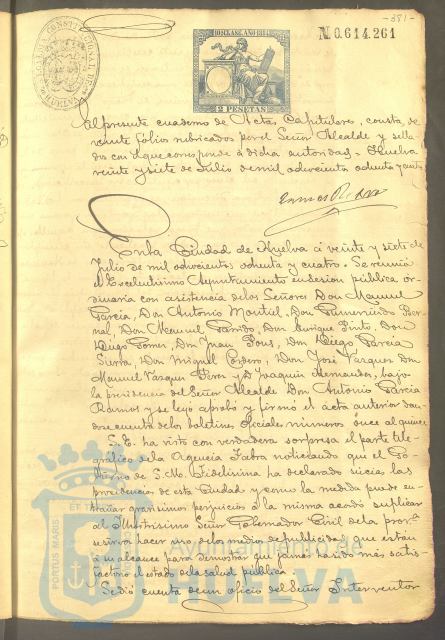 -381-
10ª CLASE. AÑO 1884
N.0.614.261
ALCALDIA CONSTITUCIONAL DE HUELVA
2 PESETAS
El presente cuaderno de Actas Capitulares, consta de
veinte folios rubricados por el Señor Alcalde y sella-
dos con el que corresponde á dicha autoridad. Huelva
veinte y siete de Julio de mil ochocientos ochenta y cuatro
En la Ciudad de Huelva á veinte y siete de
Julio de mil ochocientos ochenta y cuatro. Se reunió
el Excelentísimo Ayuntamiento en sesion pública or-
dinaria con asistencia de los Señores Don Manuel
Garcia, Don Antonio Montiel, Don Gumersindo Ber-
nal, Don Manuel Garrido, Don Enrique Pinto, Don
Diego Gomez, Don Juan Pous, Don Diego Garcia
Sierra, Don Miguel Cordero, Don José Vazquez Don
Manuel Vazquez Perez y D. Joaquin Hernandez, bajo
la presidencia del Señor Alcalde Don Antonio Garcia
Ramos y se leyó aprobó y firmó el acta anterior dan-
dose cuenta de los boletines oficiales números once al quince
S.E. ha visto con verdadera sorpresa el parte tele-
gráfico de la Agencia Fabra noticiando que el Go-
bierno de S.M. Fidelisima ha declarado sucias las
procedencias de esta Ciudad y como la medida puede en-
trañar gravisimos perjuicios á la misma acordó suplicar
al Ilustrisimo Señor Gobernador Civil de la prov.ª
se sirva hacer uso de los medios de publicidad que están
á su alcance para demostrar que jamás ha sido más satis-
factorio el estado de la salud pública
Se dió cuenta de un oficio del Señor Interventor
PORTUS MARIS
Ayuntamiento de
HUELVA